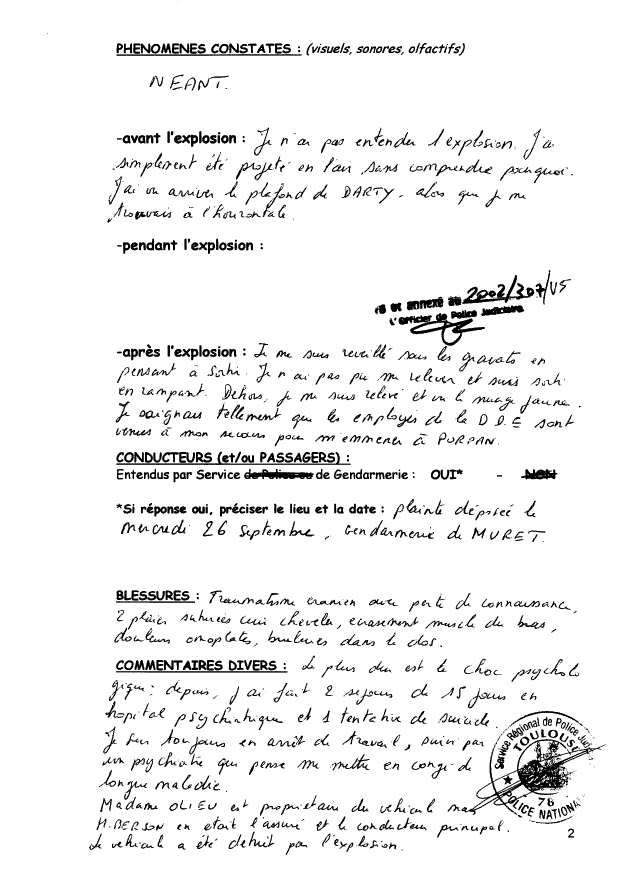 PHENOMENES CONSTATES : (visuels, sonores, olfactifs)
NEANT.
-avant l'explosion : Je n'ai pas entendu l'explosion. J'ai
simplement été projeté en l'air sans comprendre pourquoi.
J'ai vu arriver le plafond de DARTY. alors que je me
trouvais à l'hourizontale.
-pendant l'explosion :
et annexé au 2002/307/VS
L'Officier de Police Judiciaire
-après l'explosion : Je me suis reveillé sous les gravats en
pensant à Sortir. Je n'ai pas pu me relever et suis sorti
en rampant. Dehors, je me suis relevé et vu le nuage jaune.
Je saignais tellement que les employés de la D.D.E sont
venus à mon secours pour m'emmener à PURPAN.
CONDUCTEURS (et/ou PASSAGERS) :
Entendus par Service de Police ou de Gendarmerie : OUI* - NON
*Si réponse oui, préciser le lieu et la date : plainte déposée le
Mercredi 26 Septembre, Gendarmerie de MURET.
BLESSURES : Traumatisme cranien avec perte de connaissance,
2 plaies suturées cuir chevelu, ecrasement muscle du bras,
douleurs omoplates, brulures dans le dos.
COMMENTAIRES DIVERS : Le plus dur est le choc psycholo
gique : depuis, j'ai fait 2 sejours de 15 jours en
hopital psychiatrique et 1 tentative de suicide.
Je suis toujours en arrêt de travail, suivi par
un psychiatre qui pense me mettre en congé de
longue maladie.
Service Régional de Police Judiciaire
TOULOUSE
78
POLICE NATIONALE
Madame OLIEU est propriétaire du vehicule mais
M. BERSON en etait l'assuré et le conducteur principal.
Le vehicule a été detruit par l'explosion.
2